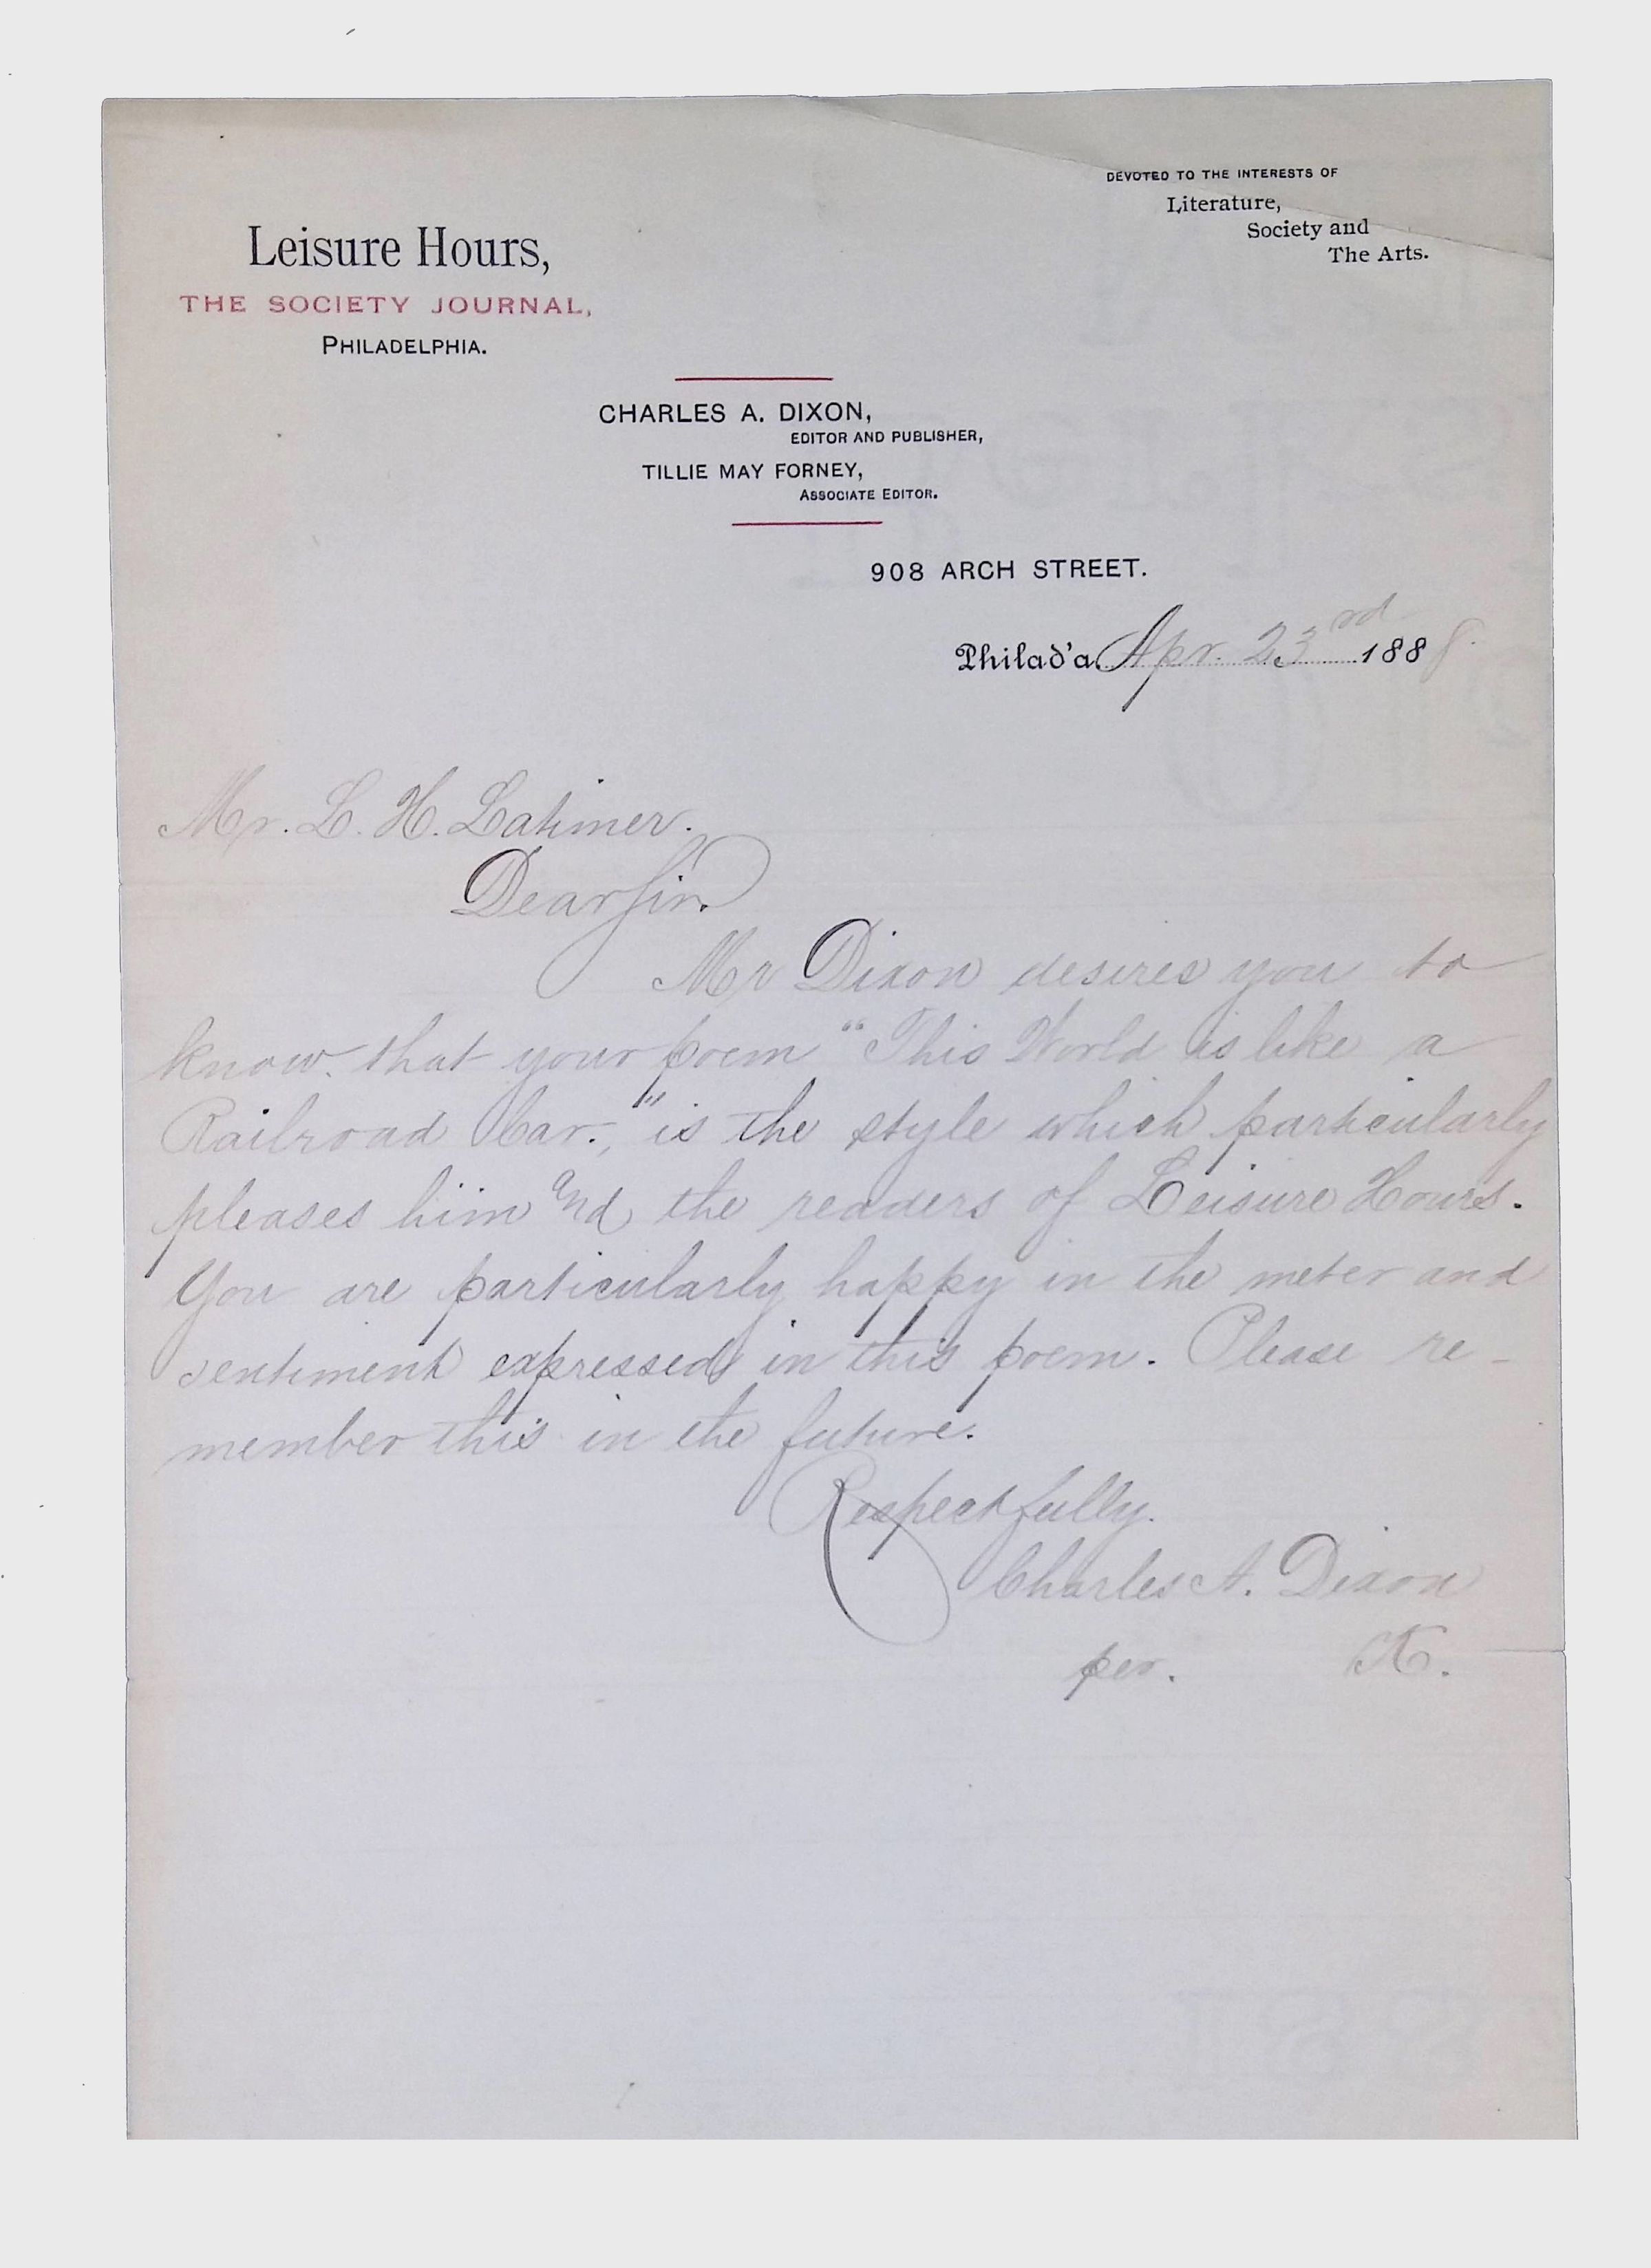 DEVOTED TO THE INTERESTS OF
Literature,
Society and
The Arts.
Leisure Hours,
THE SOCIETY JOURNAL,
PHILADELPHIA.
CHARLES A. DIXON,
EDITOR AND PUBLISHER,
TILLIE MAY FORNEY,
ASSOCIATE EDITOR.
908 ARCH STREET.
Philad'a. Apr. 23rd 1888.
Mr. L. H. Latimer.
Dear Sir.
Mr Dixon desires you to
know that your poem "This World is like a
Railroad Car.," is the style which particularly
pleases him and the readers of Leisure Hours.
You are particularly happy in the meter and
sentiment expressed in this poem. Please re-
member this in the future.
Respectfully.
Charles A. Dixon
per.